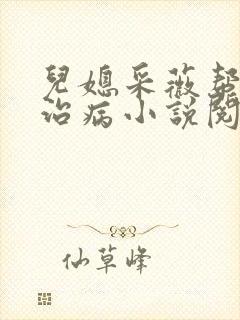 兒媳采薇幫
治病小說閱
仙草峰